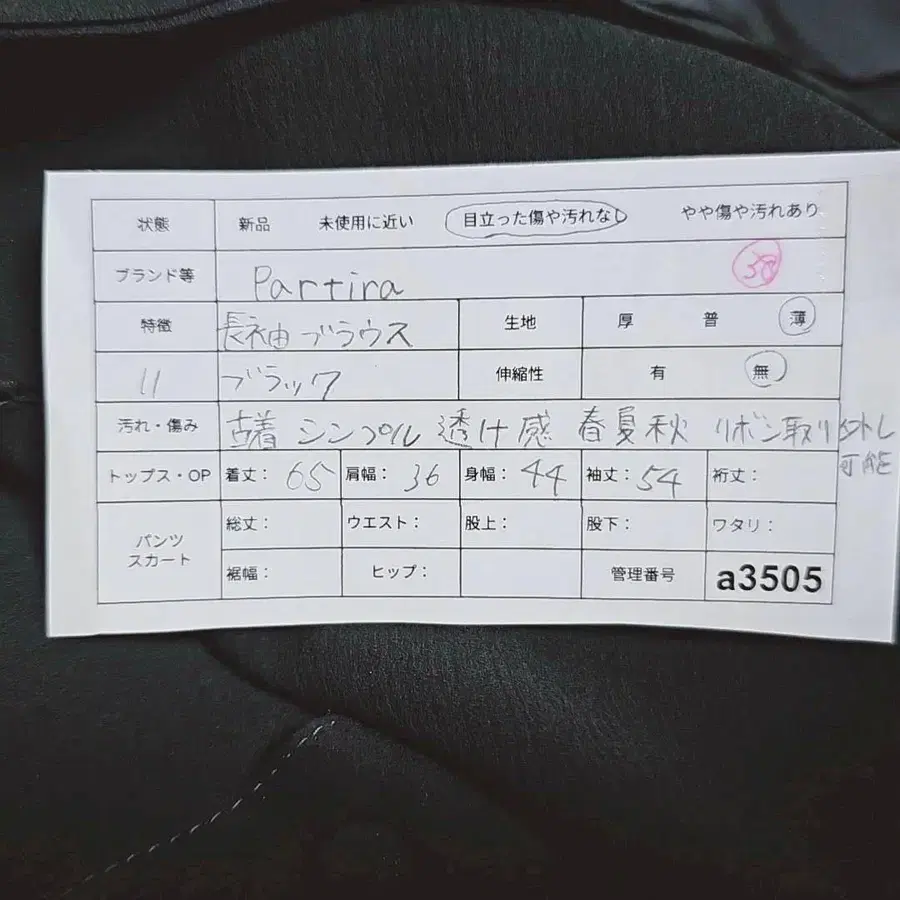 状態 新品 未使用に近い 目立った傷や汚れなし やや傷や汚れあり
ブランド等 Partira 38
特徴 長袖ブラウス 生地 厚 普 薄
11 ブラック 伸縮性 有 無
汚れ・傷み 古着 シンプル 透け感 春夏秋 リボン取り外し
可能
トップス・OP 着丈: 65 肩幅: 36 身幅: 44 袖丈: 54 裄丈:
パンツ スカート 総丈: ウエスト: 股上: 股下: ワタリ:
裾幅: ヒップ: 管理番号 a3505